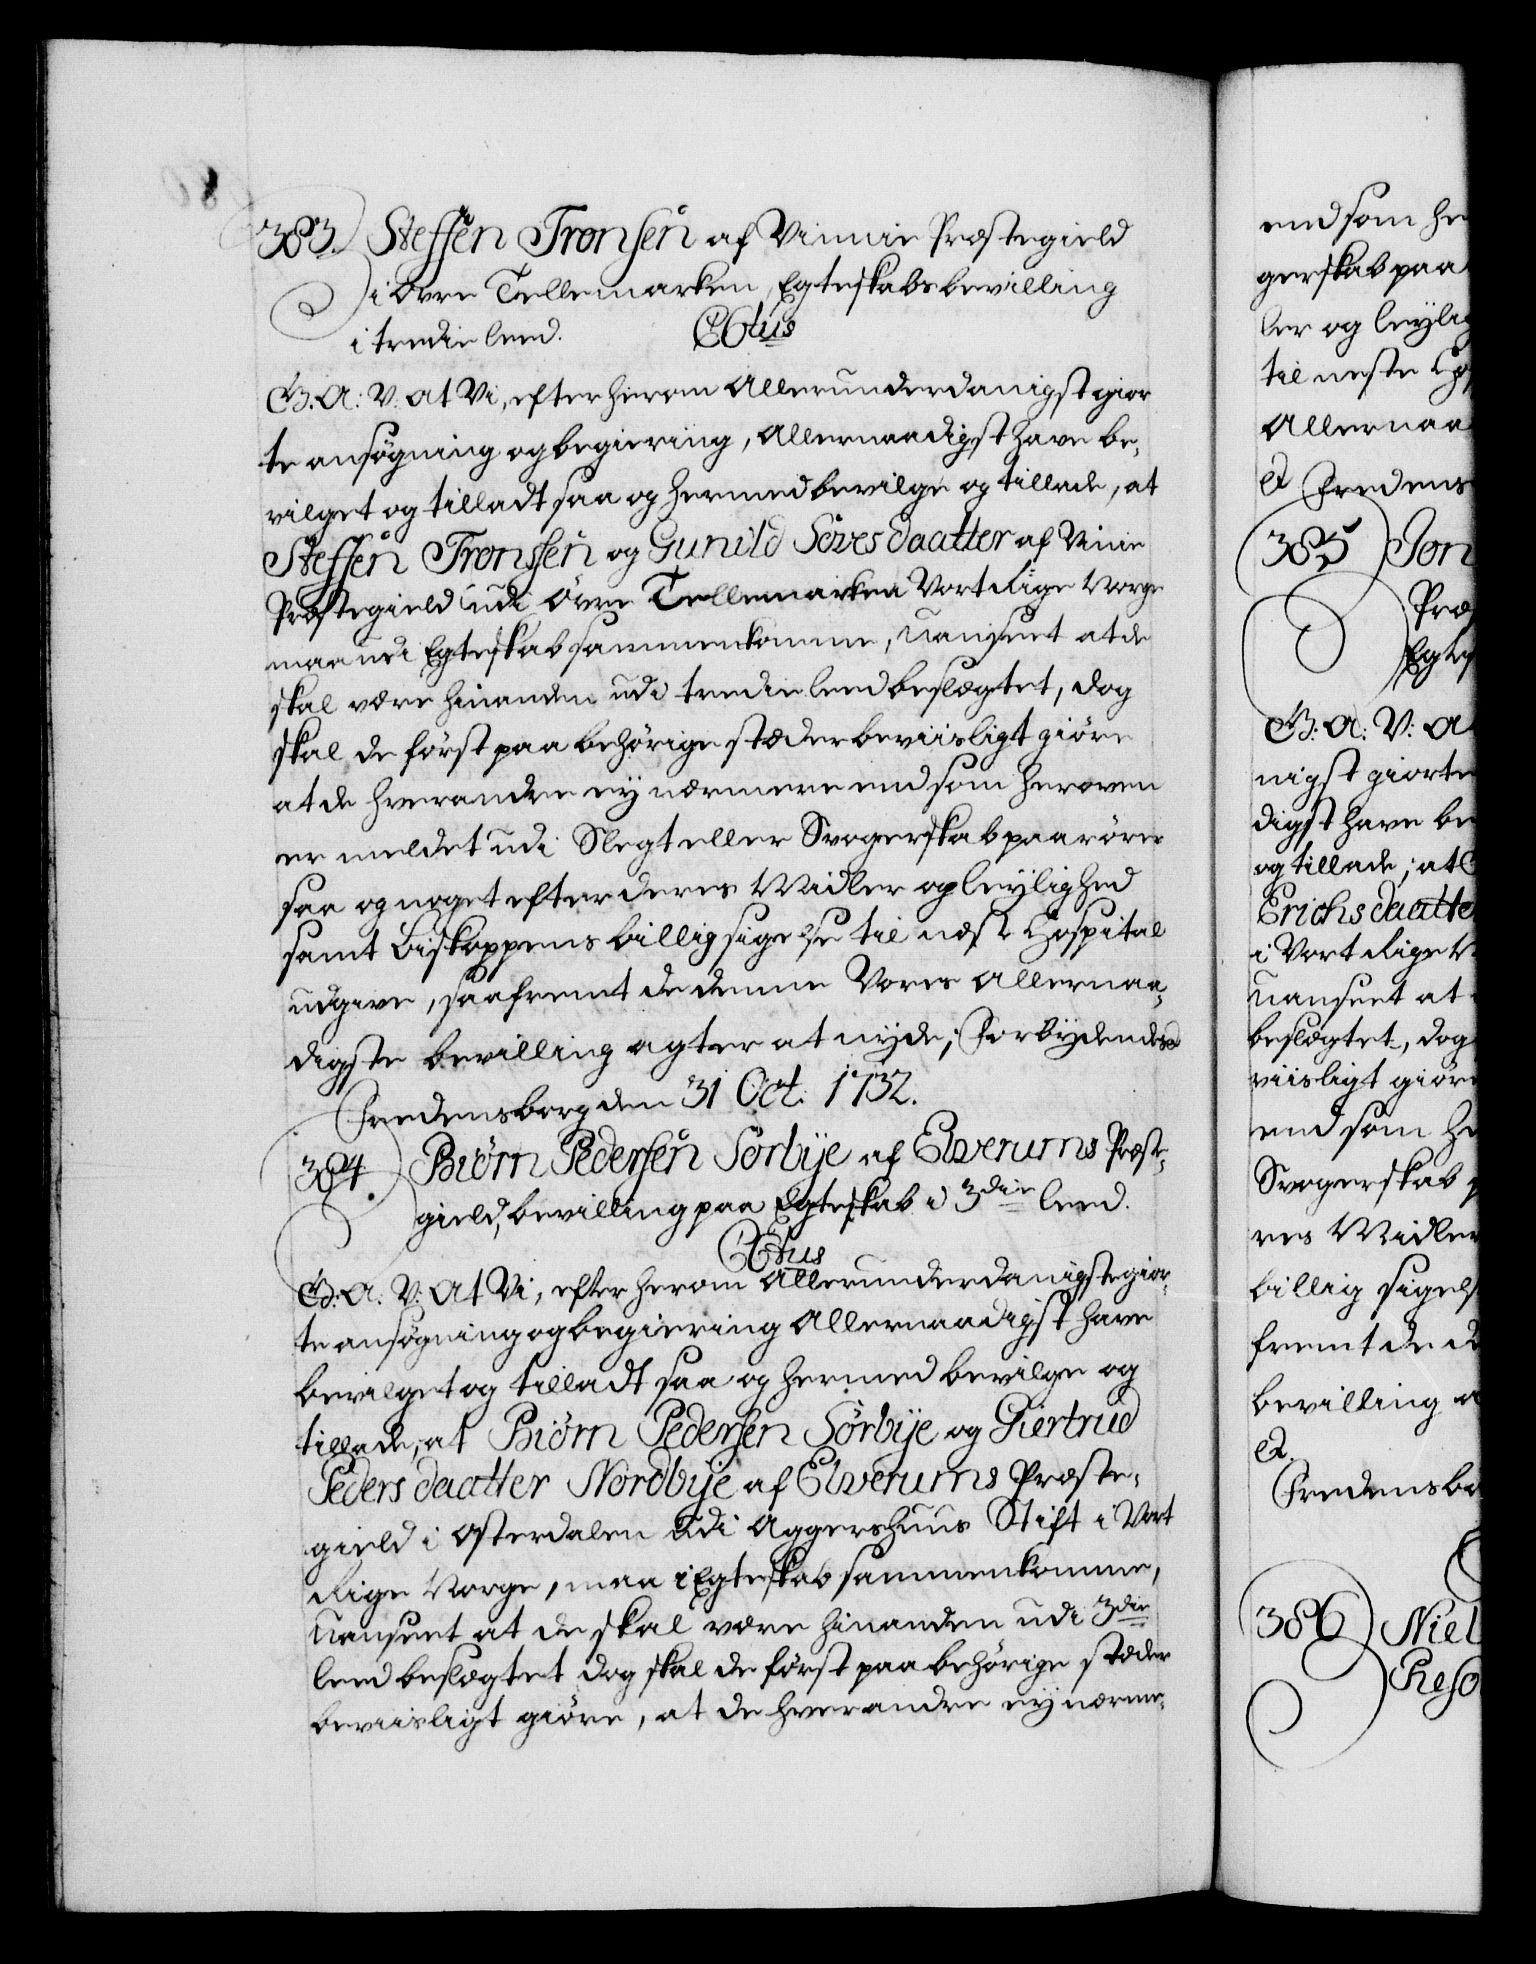 383. Steffen Tronsen af Vinnie Præstegield
i Øvre Tellemarken, Egteskabsbevilling
i tredie leed. CGtus
G. A: V. at Vi, efter herom allerunderdanigst gior
te ansøgning og begiering, allernaadigst have be,
vilget og tilladt saa og hermed bevilge og tillade, at
Steffen Tronssen og Gunild Søvesdaatter af Vinie
Præstegield udi Øvre Tellemarken Vort Rige Norge
maa udi Egteskab sammenkomme, uanseet at de
skal være hinanden udi tredie leed beslægtet, dog
skal de først paa behörige stæder beviisligt giöre
at de hverandre ey nærmere end som heroven
er meldet udi Slegt eller Svogerskab paarörer
saa og noget efter deres Midler og leylighed
samt Biskoppens billig sigelse til næste Hospital
udgive, saafremt de denne Vores allernaa,
digste bevilling agter at nyde; Forbydendes
Fredensborg den 31 Oct. 1732.
384. Biörn Pedersen Sörbÿe af Elverums Præste,
gield, bevilling paa Egteskab i 3die leed.
CGtus
G: A: V: At Vi, efter herom allerunderdanigste gior,
te ansøgning og begiering allernaadigst have
bevilget og tilladt saa og hermed bevilge og
tillade, at Biörn Pedersen Sörbÿe og Giertrud
Peders daatter Nordbÿe af Elverums Præste,
gield i Osterdalen udi Aggershuus Stift i Vort
Rige Norge, maa i Egteskab sammenkomme,
uanseet at de skal være hinanden udi 3die
leed beslægtet dog skal de först paa behörige stæder
beviisligt giöre, at de hverandre ey nærme,
end som he
gerskab paa
ler og leylig
til neste
allernaa
Fredens
385 Jon
Præs
Egtes
G: A: V: A
nigst giorte
digst have be
og tillade; at
Erichsdaatte
i Vort Rige
uanseet at
beslægtet, dog
viisligt giöre
end som he
Svogerskab
res Midler
billig sigels
fremt de d
bevilling a
Fredensbo
386 Niel
Reso